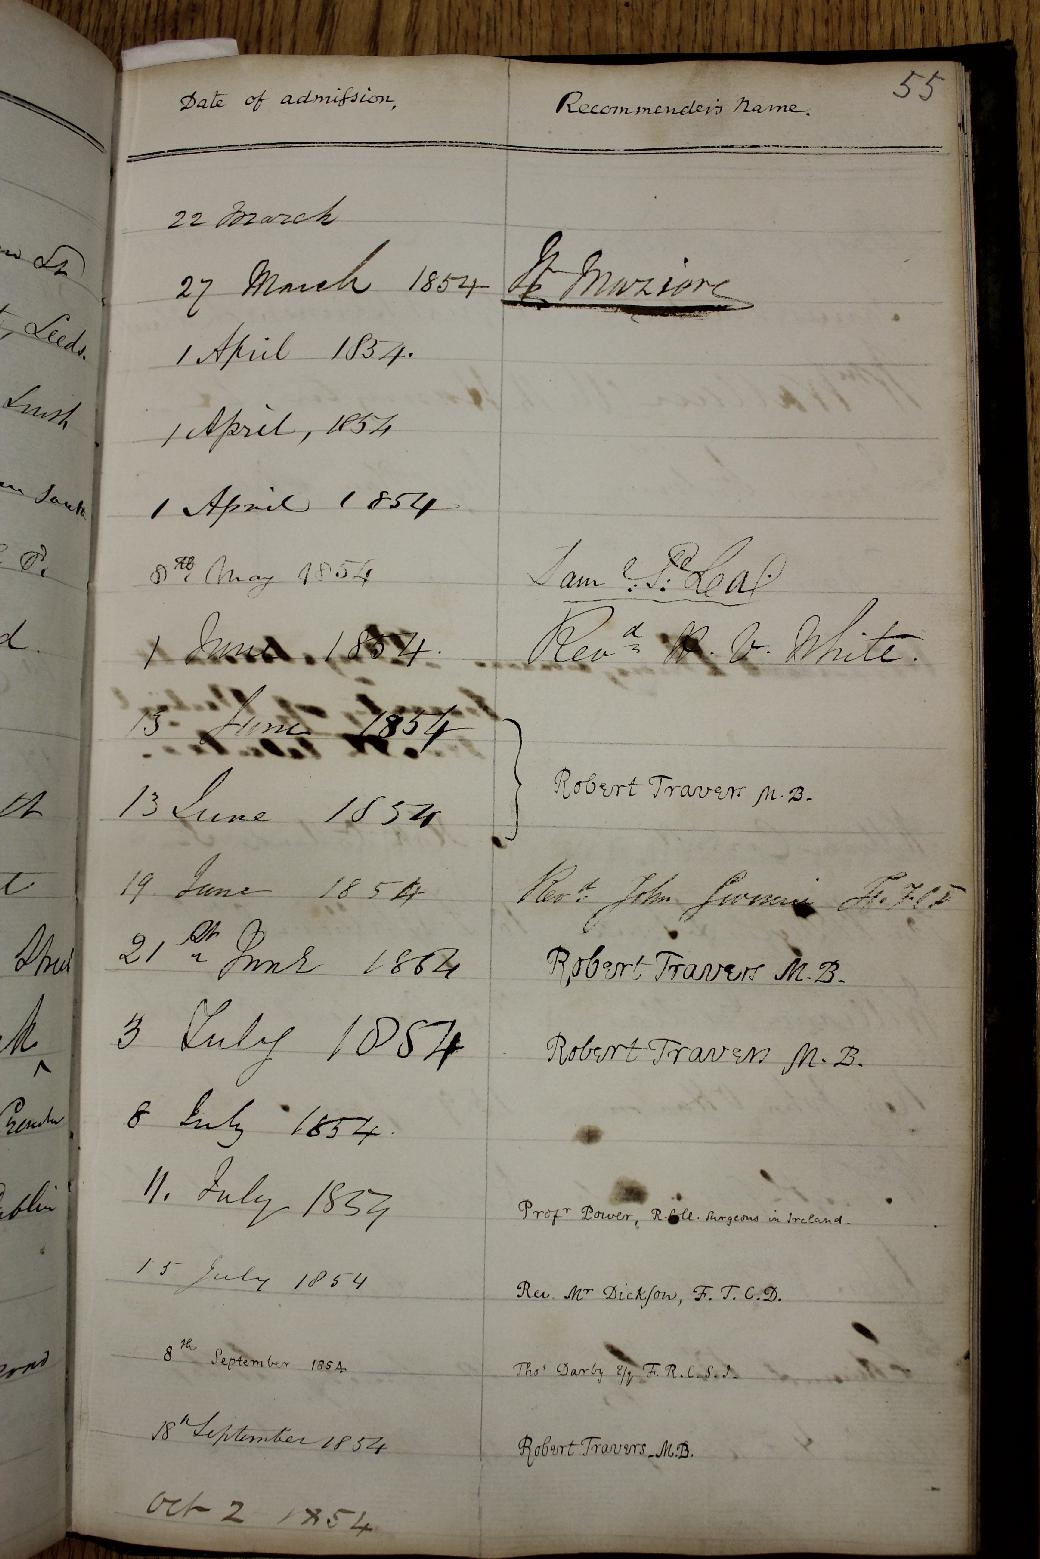 55
Date of admission, Recommender's Name.
22 March
27 March 1854 Maziere
1 April 1854.
1 April, 1854
1 April 1854
8th May 1854 Saml
1 June 1854. Revd W. V. White.
13 June 1854
Robert Travers M.B.
13 June 1854
19 June 1854 Revd John F.T.C.D
21st June 1854 Robert Travers M.B.
3 July 1854 Robert Travers M.B.
8 July 1854.
11. July 1854 Profr Power, R. Coll. Surgeons in Ireland.
15 July 1854 Rev. Mr Dickson, F.T.C.D.
8th September 1854 Thos Darby Esq F.R.C.S.I.
18th September 1854 Robert Travers M.B.
Oct 2 1854
St
Leeds.
P.
d.
th
t
Street
Dublin